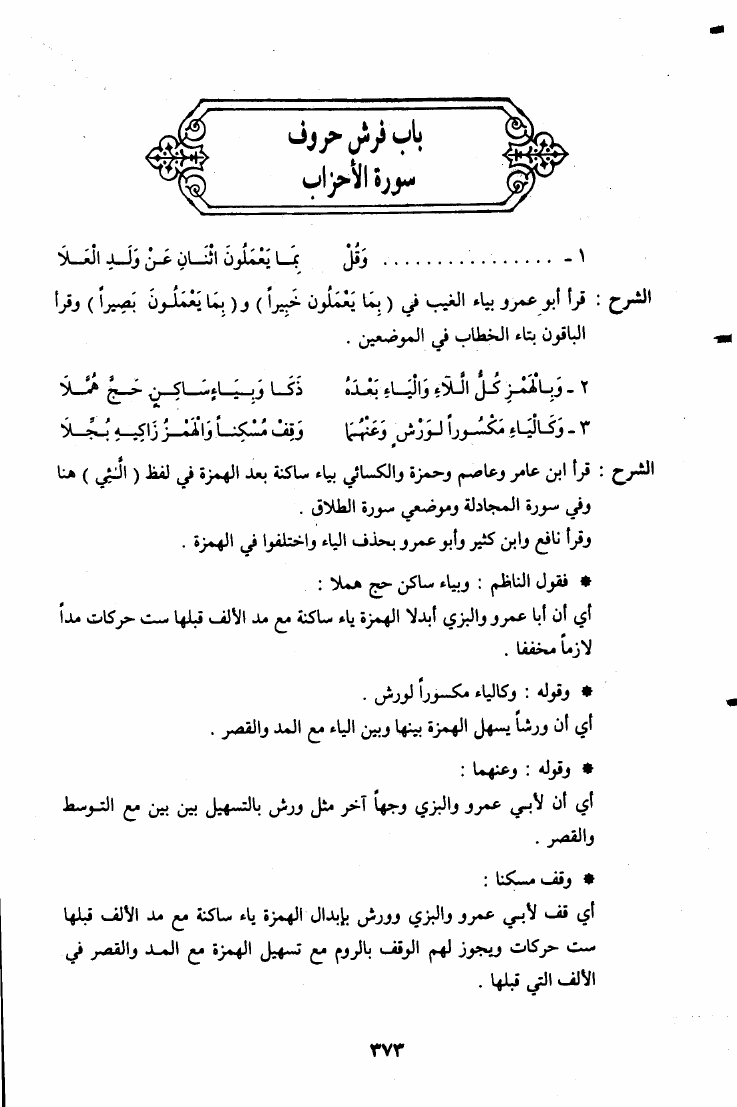 باب فرش حروف
سورة الأحزاب
١ - . . . . . . . . . . . . . . . . وَقُلْ بِمَا يَعْمَلُونَ اثْنَـانِ عَـنْ وَلَـدِ الْعَـلَا
الشرح : قرأ أبو عمرو بياء الغيب في ( بِمَا يَعْمَلُون خَبِيراً ) و( بِمَا يَعْمَلُـونَ بَصِيراً ) وقرأ
الباقون بتاء الخطاب في الموضعين .
٢ - وَبِـالْهَمْـزِ كُـلُّ الَّـلَاءِ وَالْيَـاءِ بَعْـدَهُ ذَكَـا وَبِـيَـاءٍ سَـاكِـنٍ حَـجَّ هُمَّـلَا
٣ - وَكَـالْيَـاءِ مَكْسُـوراً لِـوَرْشٍ وَعَنْهُـمَا وَقِـفْ مُسْكِنـاً وَالْهَمْـزُ زَاكِيـهِ بُـجِّـلَا
الشرح : قرأ ابن عامر وعاصم وحمزة والكسائي بياء ساكنة بعد الهمزة في لفظ ( الَّـئِي ) هنا
وفي سورة المجادلة وموضعي سورة الطلاق .
وقرأ نافع وابن كثير وأبو عمرو بحذف الياء واختلفوا في الهمزة .
* فقول الناظم : وبياء ساكن حج هملا :
أي أن أبا عمرو والبزي أبدلا الهمزة ياء ساكنة مع مد الألف قبلها ست حركات مداً
لازماً مخففا .
* وقوله : وكالياء مكسوراً لورش .
أي أن ورشاً يسهل الهمزة بينها وبين الياء مع المد والقصر .
* وقوله : وعنهما :
أي أن لأبـي عمرو والبزي وجهاً آخر مثل ورش بالتسهيل بين بين مع التـوسط
والقصر .
* وقف مسكنا :
أي قف لأبـي عمرو والبزي وورش بإبدال الهمزة ياء ساكنة مع مد الألف قبلها
ست حركات ويجوز لهم الوقف بالروم مع تسهيل الهمزة مع المـد والقصر في
الألف التي قبلها .
٣٧٣